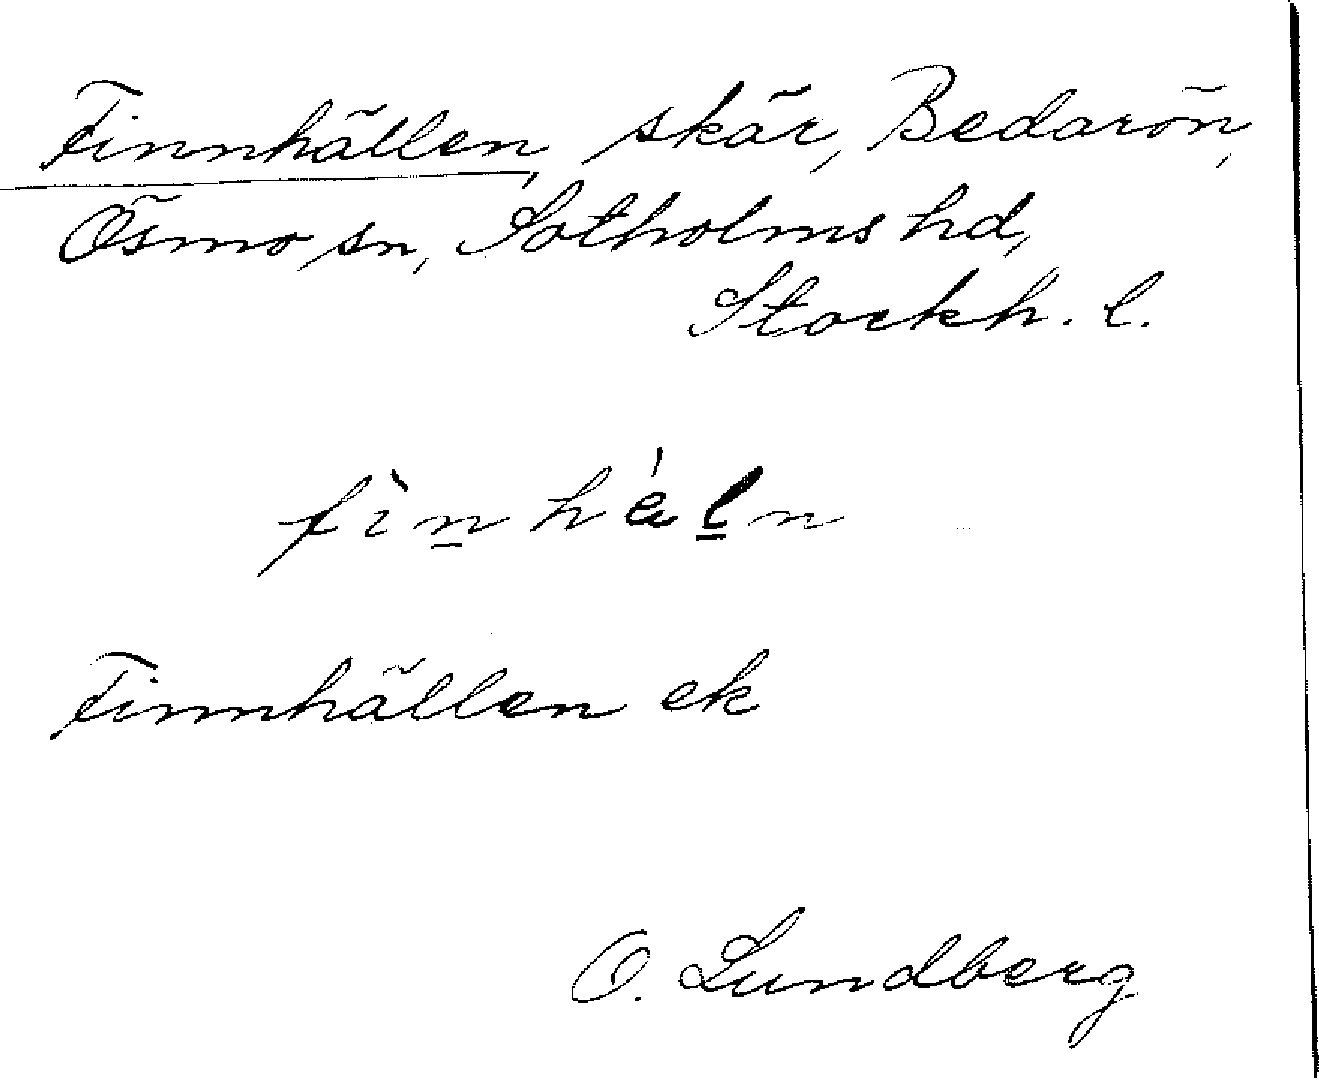 Finnhällen, skär, Bedarön,
Ösmo sn, Sotholms hd,
Stockh. l.
Finnhällen ek
O. Lundberg